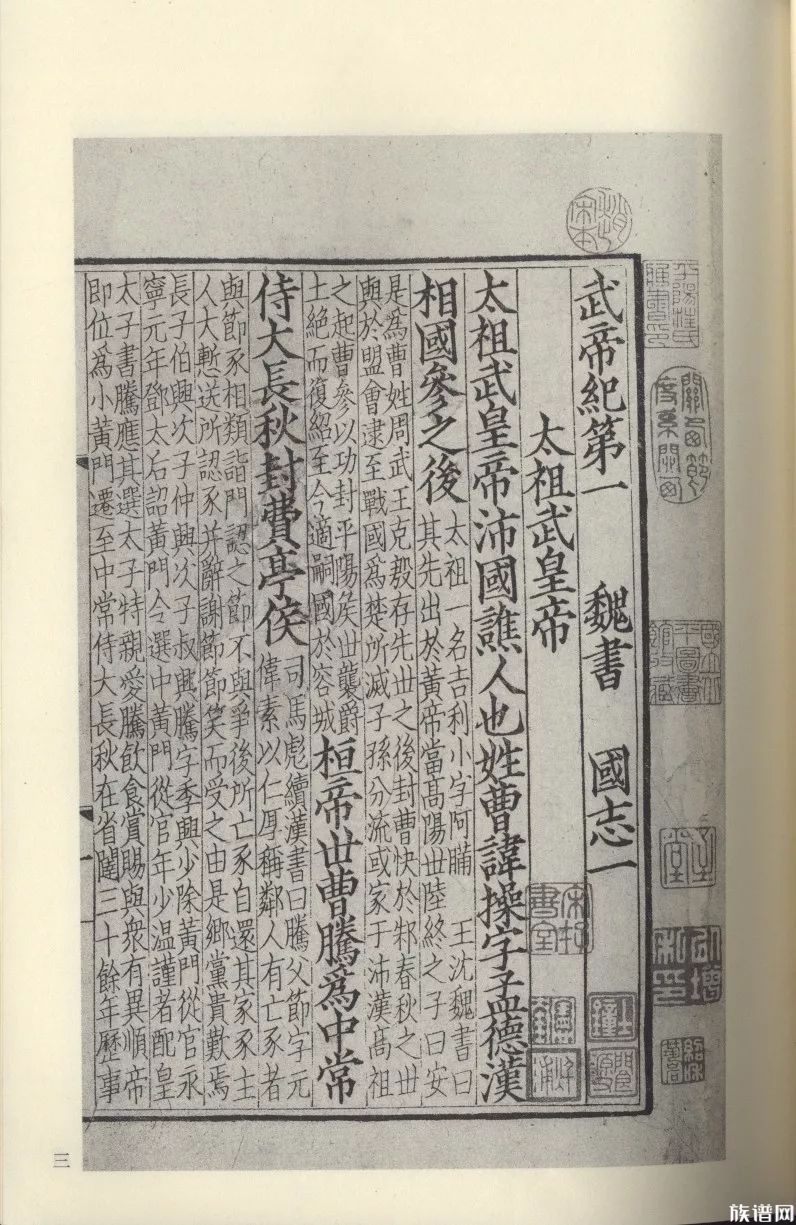 武帝紀第一 魏書 國志一
太祖武皇帝
太祖武皇帝沛國譙人也姓曹諱操字孟德漢
相國參之後
太祖一名吉利小字阿瞞 王沈魏書曰
其先出於黃帝當高陽世陸終之子曰安
是爲曹姓周武王克殷存先世之後封曹俠於邾春秋之世
與於盟會逮至戰國爲楚所滅子孫分流或家于沛漢高祖
之起曹參以功封平陽侯世襲爵
土絕而復紹至今適嗣國於容城
桓帝世曹騰爲中常
侍大長秋封費亭侯
司馬彪續漢書曰騰父節字元
偉素以仁厚稱鄰人有亡豕者
與節豕相類詣門認之節不與爭後所亡豕自還其家豕主
人大慙送所認豕并辭謝節節笑而受之由是鄉黨貴歎焉
長子伯興次子仲興次子叔興騰字季興少除黃門從官永
寧元年鄧太后詔黃門令選中黃門從官年少溫謹者配皇
太子書騰應其選太子特親愛騰飲食賞賜與衆有異順帝
即位爲小黃門遷至中常侍大長秋在省闥三十餘年歷事
三
族谱网